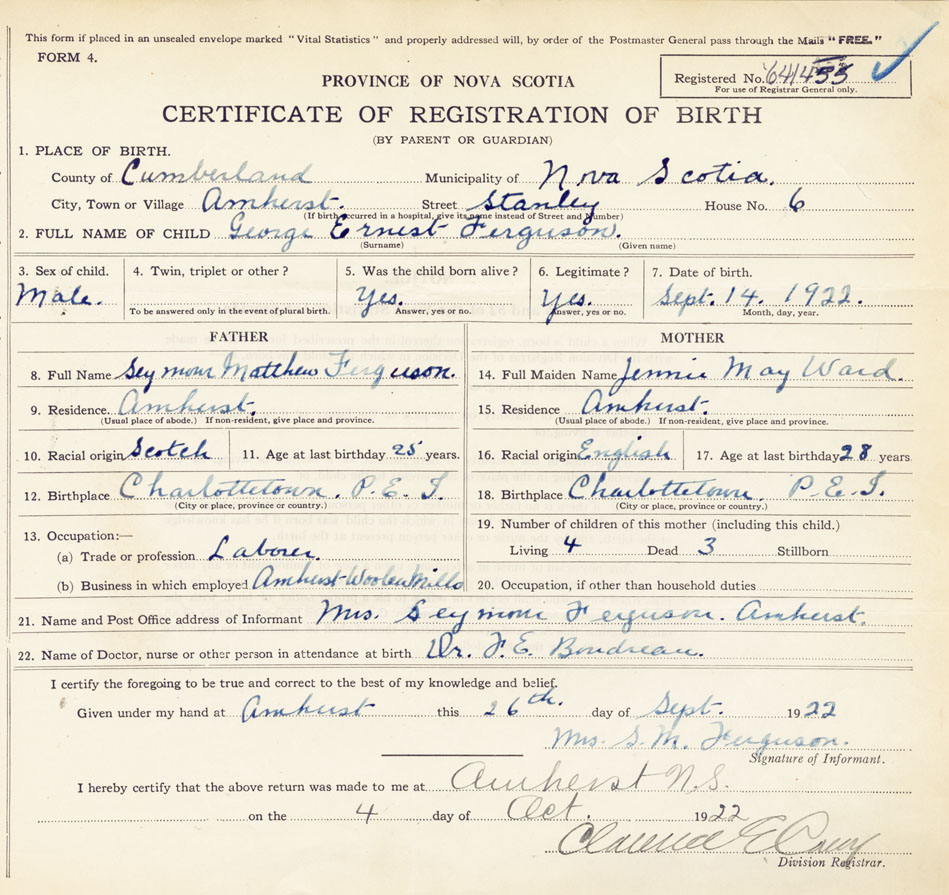 This form if placed in an unsealed envelope marked "Vital Statistics" and properly addressed will, by order of the Postmaster General pass through the Mails "FREE."
FORM 4.
PROVINCE OF NOVA SCOTIA
Registered No.
For use of Registrar General only.
CERTIFICATE OF REGISTRATION OF BIRTH
(BY PARENT OR GUARDIAN)
1. PLACE OF BIRTH.
County of Cumberland Municipality of Nova Scotia.
City, Town or Village Amherst. Street Stanley House No. 6
(If birth occurred in a hospital, give its name instead of Street and Number)
2. FULL NAME OF CHILD George Ernest Ferguson.
(Surname) (Given name)
3. Sex of child. 4. Twin, triplet or other? 5. Was the child born alive? 6. Legitimate? 7. Date of birth.
Male. Yes. Yes. Sept. 14. 1922.
To be answered only in the event of plural birth. Answer, yes or no. Answer, yes or no. Month, day, year.
FATHER MOTHER
8. Full Name Seymour Matthew Ferguson. 14. Full Maiden Name Jennie May Ward.
9. Residence. Amherst. 15. Residence Amherst.
(Usual place of abode.) If non-resident, give place and province. (Usual place of abode.) If non-resident, give place and province.
10. Racial origin Scotch 11. Age at last birthday 25 years. 16. Racial origin English 17. Age at last birthday 28 years
12. Birthplace Charlottetown. P.E.I. 18. Birthplace Charlottetown. P.E.I.
(City or place, province or country.) (City or place, province or country.)
13. Occupation:— 19. Number of children of this mother (including this child.)
(a) Trade or profession Laborer. Living 4 Dead 3 Stillborn
(b) Business in which employed Amherst Woolen Mills 20. Occupation, if other than household duties
21. Name and Post Office address of Informant Mrs. Seymour Ferguson. Amherst.
22. Name of Doctor, nurse or other person in attendance at birth Dr. F.E. Boudreau.
I certify the foregoing to be true and correct to the best of my knowledge and belief.
Given under my hand at Amherst this 26th. day of Sept. 1922
Mrs. S.M. Ferguson.
Signature of Informant.
I hereby certify that the above return was made to me at Amherst N.S.
on the 4 day of Oct. 1922
Clarence E
Division Registrar.